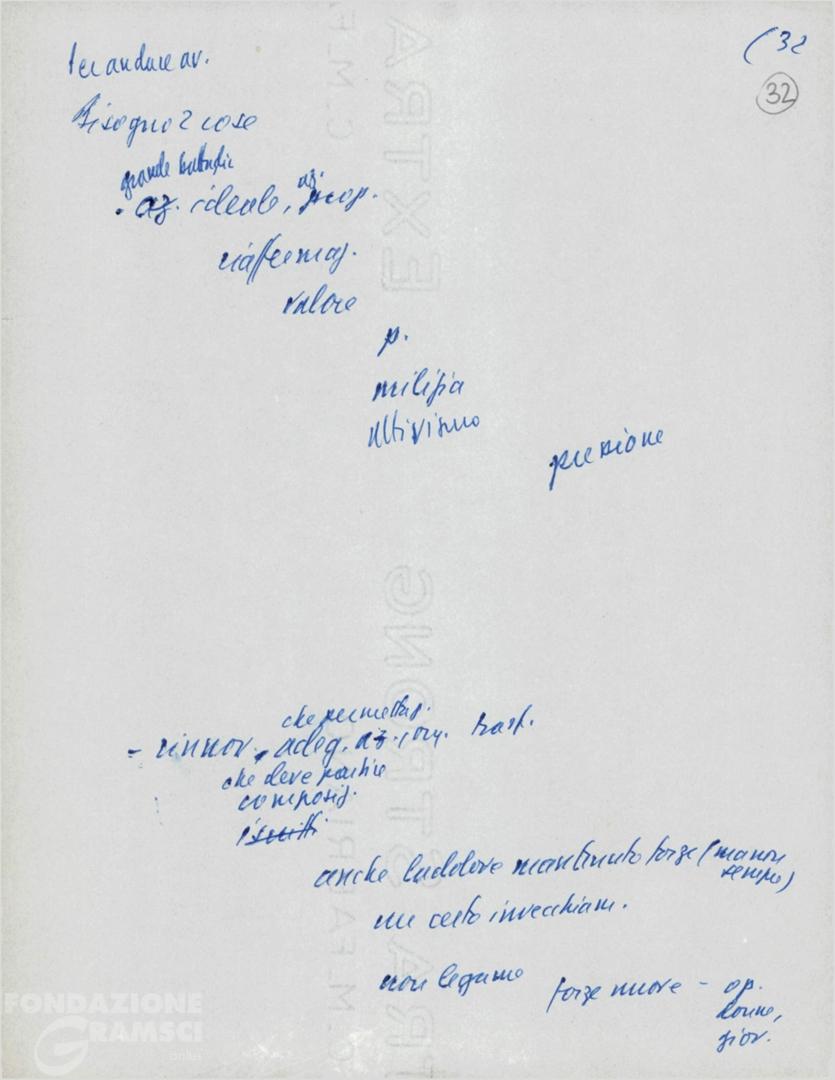 (32
32
Per andare av.
Bisogno 2 cose
grande battaglia
. az. ideale, az. prop.
riaffermaz.
valore
p.
milizia
attivismo
pressione
che permetta
- rinnov., adeg. az. org. trasf.
che deve partire
composiz.
iscritti
anche laddove mantenuto forze (ma non
sempre)
un certo invecchiam.
non legame forze nuove - op.
donne,
giov.
EXTRA STRONG
C. M. FABRIANO
FONDAZIONE
GRAMSCI
onlus